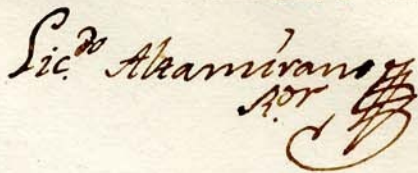 Lic.do Altamirano
R.or